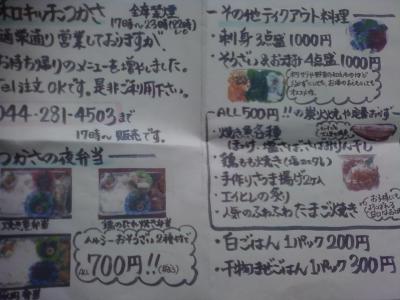 和キッチンつかさ 全席禁煙
17時〜23時(22時)
通常通り営業しておりますが、
お持ち帰りのメニューを増やしました。
Tel注文OKです。是非ご利用下さい。
044-281-4503まで
17時〜販売です。
つかさの夜弁当
焼き魚弁当
鶏のたれ焼き弁当
ヘルシーおそうざい2種付で
ALL 700円!!(税込)
・その他テイクアウト料理
・刺身3点盛1000円
・そうざい4点盛1000円
ALL500円!!の炭火焼や定番おかず
・焼き魚各種
ほっけ・塩さば・さばみりん干し
・鶏もも焼き(塩orタレ)
・手作りさつま揚げ2ヶ入
・エイヒレの炙り
・人気のふわふわたまご焼き
・白ごはん 1パック200円
・干物まぜごはん1パック300円